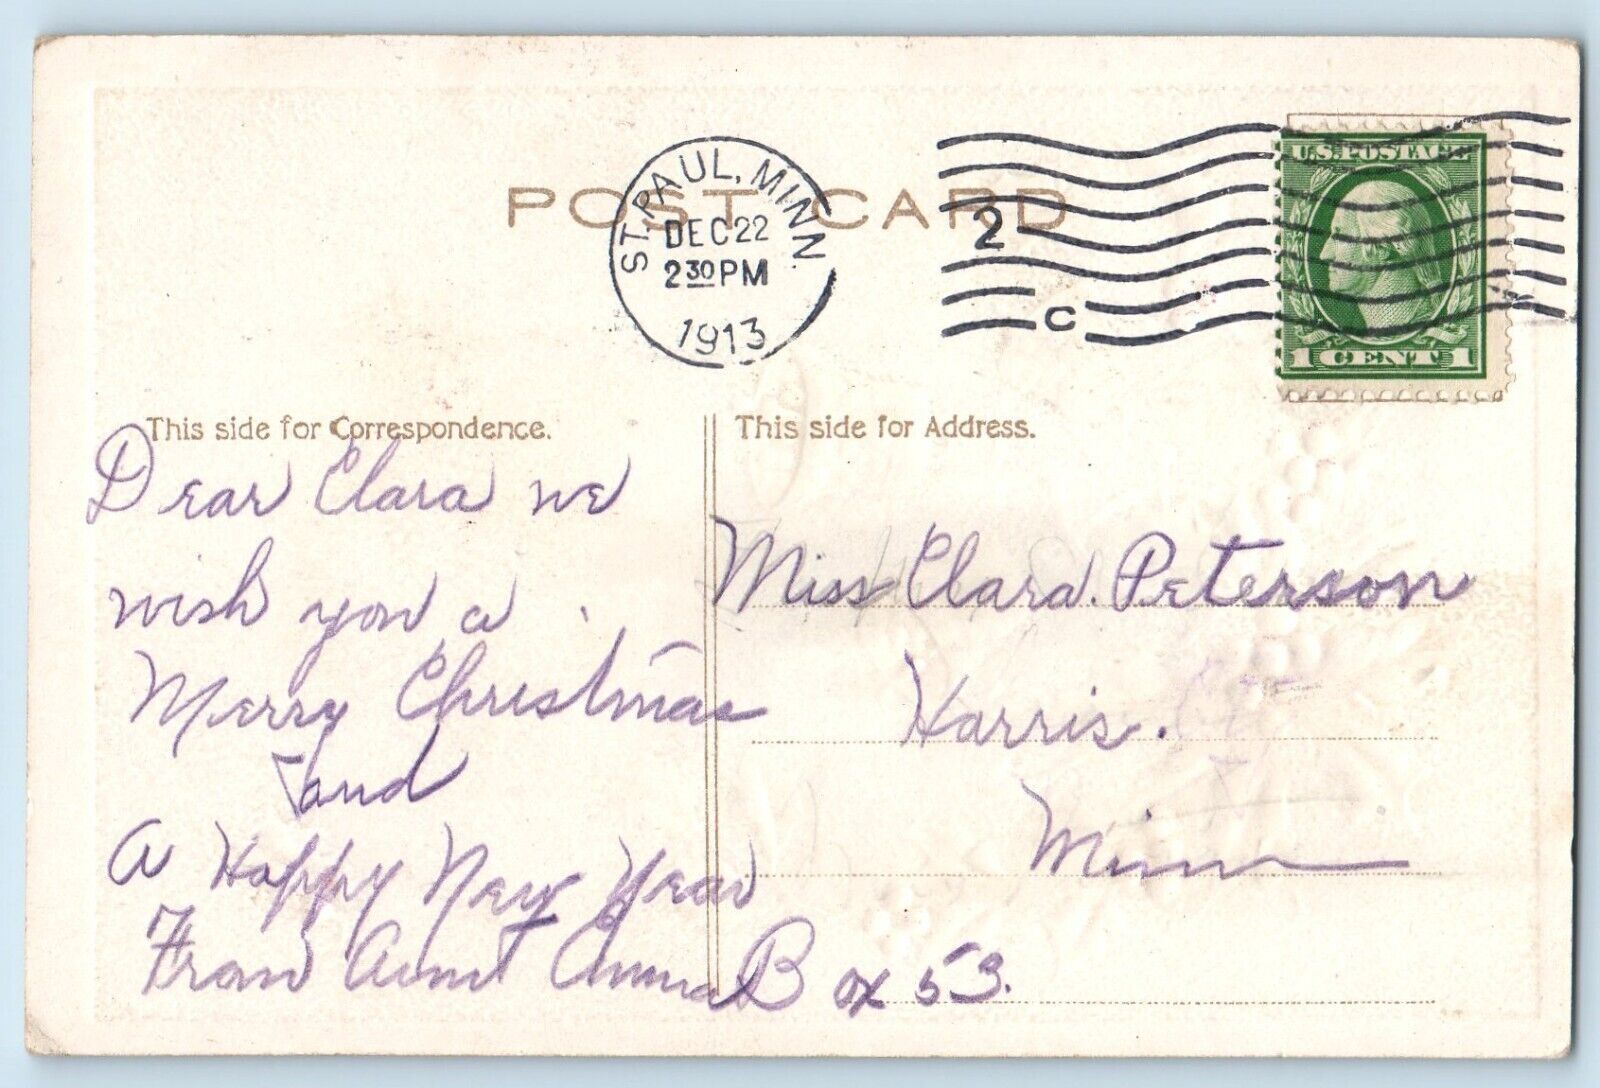 POST CARD
ST. PAUL, MINN.
DEC 22
2 30 PM
1913
2
C
U.S. POSTAGE
1 CENT 1
This side for Correspondence.
This side for Address.
Dear Clara we
wish you a
Merry Christmas
and
A Happy New Year
From Aunt Anna
Miss Clara. Peterson
Harris.
Minn
Box 53.